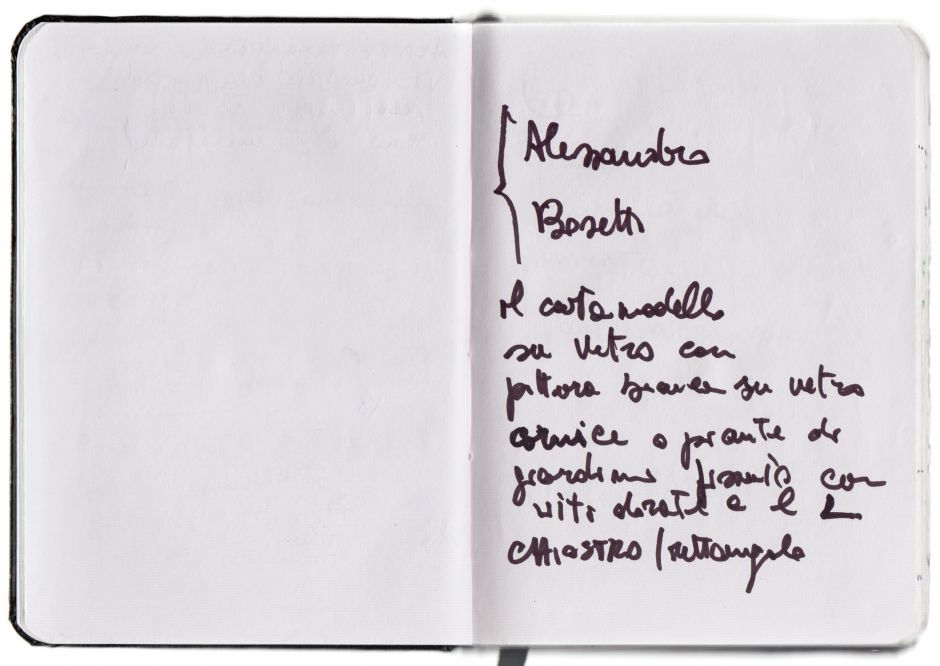 Alessandro
Bosetti
il cartamodello
su vetro con
pittura bianca su vetro
cornice o piante di
giardini con
viti dorate e
CHIOSTRO / rettangolo